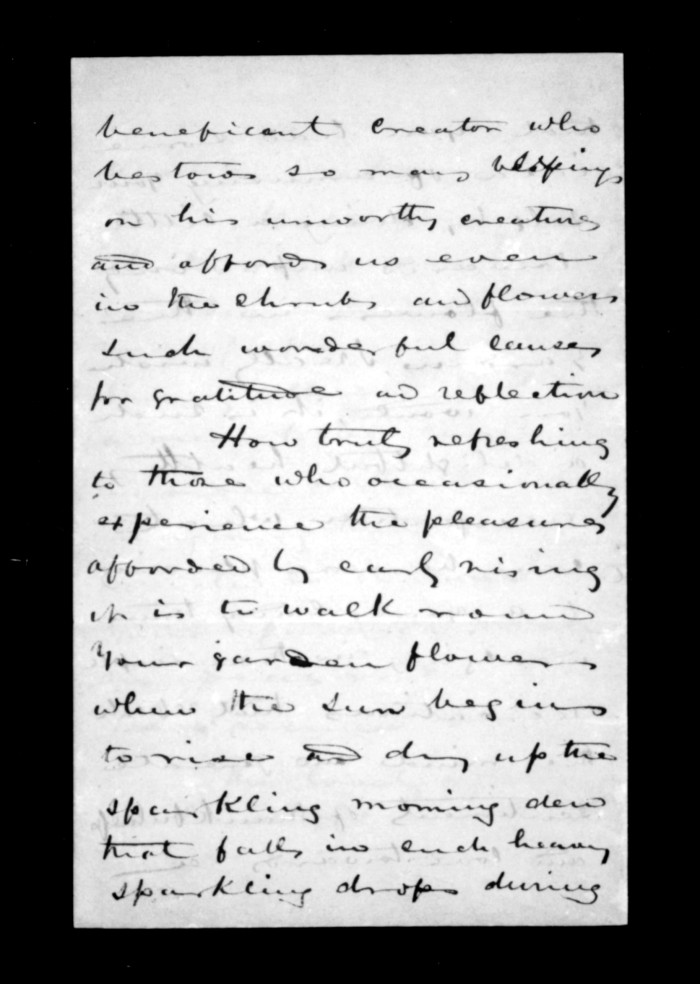 beneficent Creator who
bestows so many blessings
on his unworthy creatures
and affords us even
in the Shrubs and flowers
such wonderful causes
for gratitude and reflection
How truly refreshing
to those who occasionally
experience the pleasures
afforded by early rising
it is to walk round
your garden flowers
when the sun begins
to rise and dry up the
sparkling morning dew
that falls in such heavy
sparkling drops during